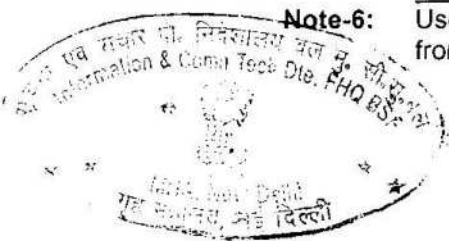 Note-6: Use
from
सूचना एवं संचार प्रौ. निदेशालय बल मु. सी.सु.बल
Information & Comn Tech Dte. FHQ BSF
MHA, New Delhi
गृह मंत्रालय, नई दिल्ली